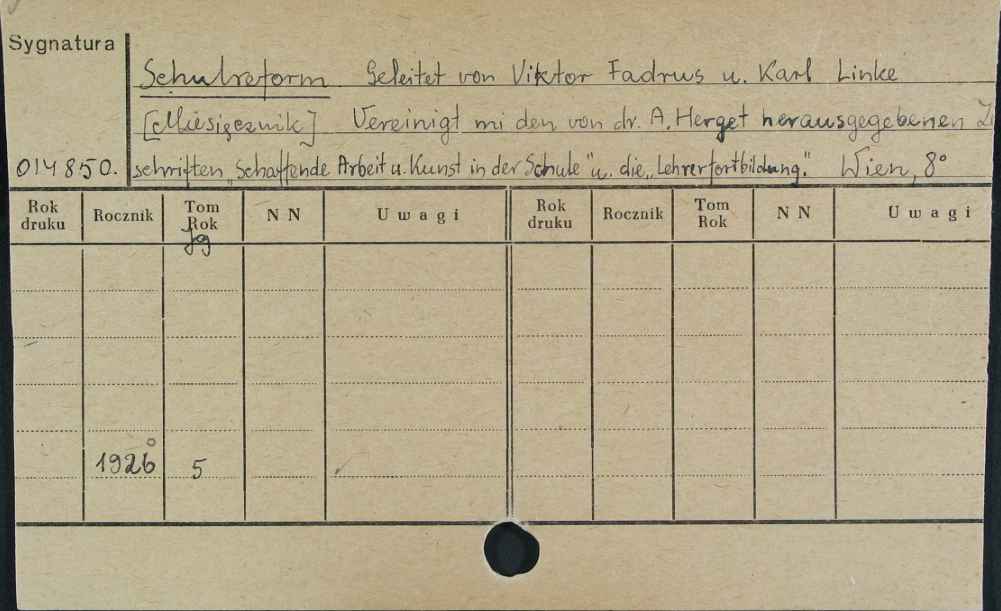 Sygnatura
Schulreform Geleitet von Viktor Fadrus u. Karl Linke
[Miesięcznik] Vereinigt mi den von dr. A. Herget herausgegebenen
014850. schriften "Schaffende Arbeit u. Kunst in der Schule" u. die "Lehrerfortbildung." Wien, 8°
Rok druku Rocznik Tom Rok NN Uwagi Rok druku Rocznik Tom Rok NN Uwagi
Jg
1926 5